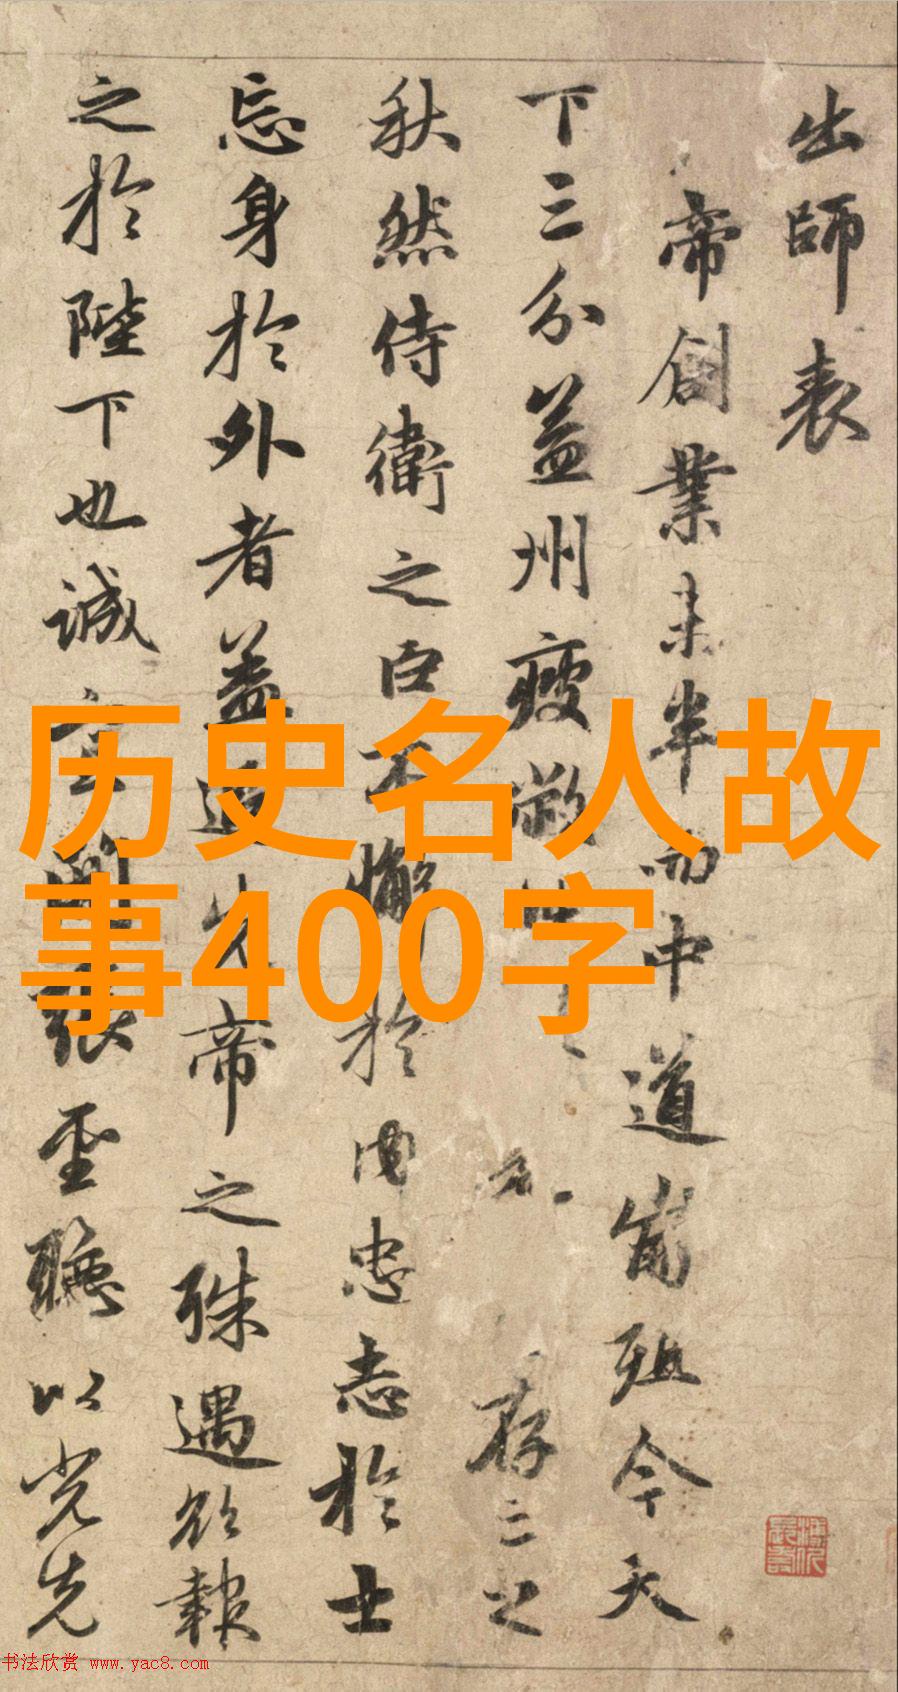 出師表
帝創業未半而中道崩殂今天
下三分益州疲敝存亡之
秋然侍衛之臣不懈於内忠志於士
忘身於外者蓋追先帝之殊遇欲報
之於陛下也誠宜開張聖聽以光先
历史名人故
事400字
书法欣赏 www.yac8.com